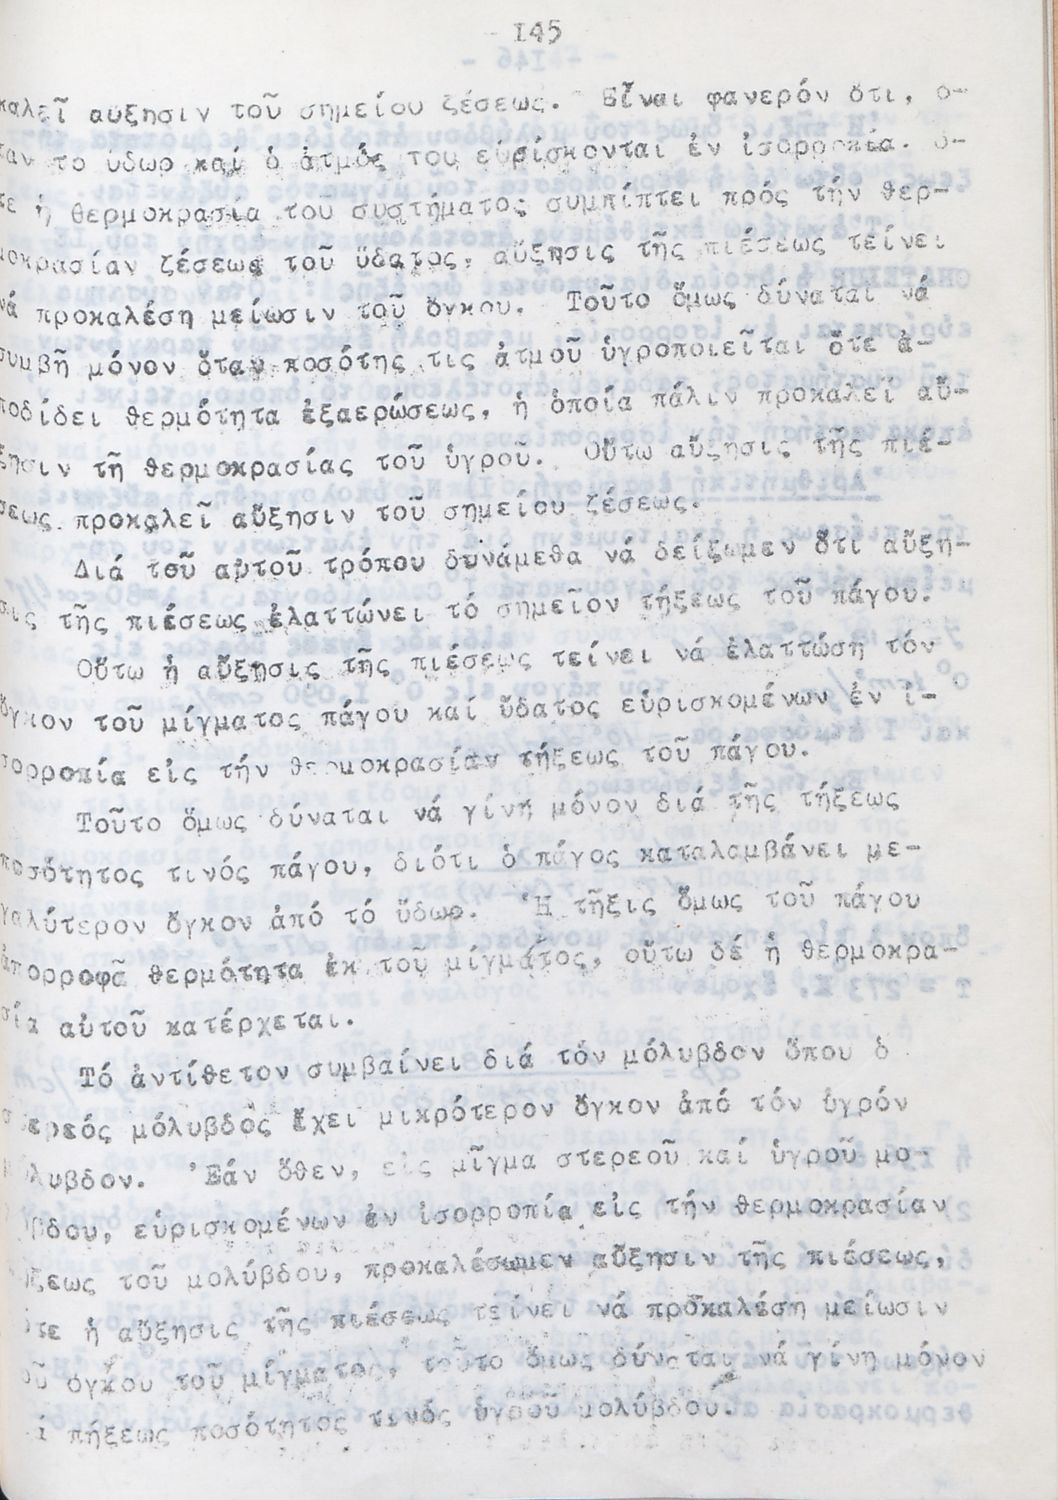 - 145
καλεῖ αὔξησιν τοῦ σημείου ζέσεως. Εἶναι φανερόν ὅτι, ὅ-
ταν το ὕδωρ καί ὁ ἀτμός του εὑρίσκονται ἐν ἰσορροπία. ὅ-
τε ἡ θερμοκρασία τοῦ συστήματος συμπίπτει πρός τήν θερ-
μοκρασίαν ζέσεως τοῦ ὕδατος, αὔξησις τῆς πιέσεως τείνει
νά προκαλέση μείωσιν τοῦ ὄγκου. Τοῦτο ὅμως δύναται νά
συμβῆ μόνον ὅταν ποσότης τις ἀτμοῦ ὑγροποιεῖται ὅτε ἀ-
ποδίδει θερμότητα ἐξαερώσεως, ἡ ὁποία πάλιν προκαλεῖ αὔ-
ξησιν τῆ θερμοκρασίας τοῦ ὑγροῦ. Οὕτω αὔξησις τῆς πιέ-
σεως προκαλεῖ αὔξησιν τοῦ σημείου ζέσεως.
Διά τοῦ αὐτοῦ τρόπου δυνάμεθα νά δείξωμεν ὅτι αὔξη-
σις τῆς πιέσεως ἐλαττώνει τό σημεῖον τήξεως τοῦ πάγου.
Οὕτω ἡ αὔξησις τῆς πιέσεως τείνει νά ἐλαττώση τόν
ὄγκον τοῦ μίγματος πάγου καί ὕδατος εὑρισκομένων ἐν ἰ-
σορροπία εἰς τήν θερμοκρασίαν τήξεως τοῦ πάγου.
Τοῦτο ὅμως δύναται νά γίνη μόνον διά τῆς τήξεως
ποσότητος τινός πάγου, διότι ὁ πάγος καταλαμβάνει με-
γαλύτερον ὄγκον ἀπό τό ὕδωρ. Ἡ τῆξις ὅμως τοῦ πάγου
ἀπορροφᾶ θερμότητα ἐκ τοῦ μίγματος, οὕτω δέ ἡ θερμοκρα-
σία αὐτοῦ κατέρχεται.
Τό ἀντίθετον συμβαίνει διά τόν μόλυβδον ὅπου ὁ
στερεός μόλυβδος ἔχει μικρότερον ὄγκον ἀπό τόν ὑγρόν
μόλυβδον. Ἐάν ὅθεν, εἰς μῖγμα στερεοῦ καί ὑγροῦ μο-
λύβδου, εὑρισκομένων ἐν ἰσορροπία εἰς τήν θερμοκρασίαν
τήξεως τοῦ μολύβδου, προκαλέσωμεν αὔξησιν τῆς πιέσεως,
ὅτε ἡ αὔξησις τῆς πιέσεως τείνει νά προκαλέση μείωσιν
τοῦ ὄγκου τοῦ μίγματος, τοῦτο ὅμως δύναται νά γίνη μόνον
πήξεως ποσότητος τινός ὑγροῦ μολύβδου.